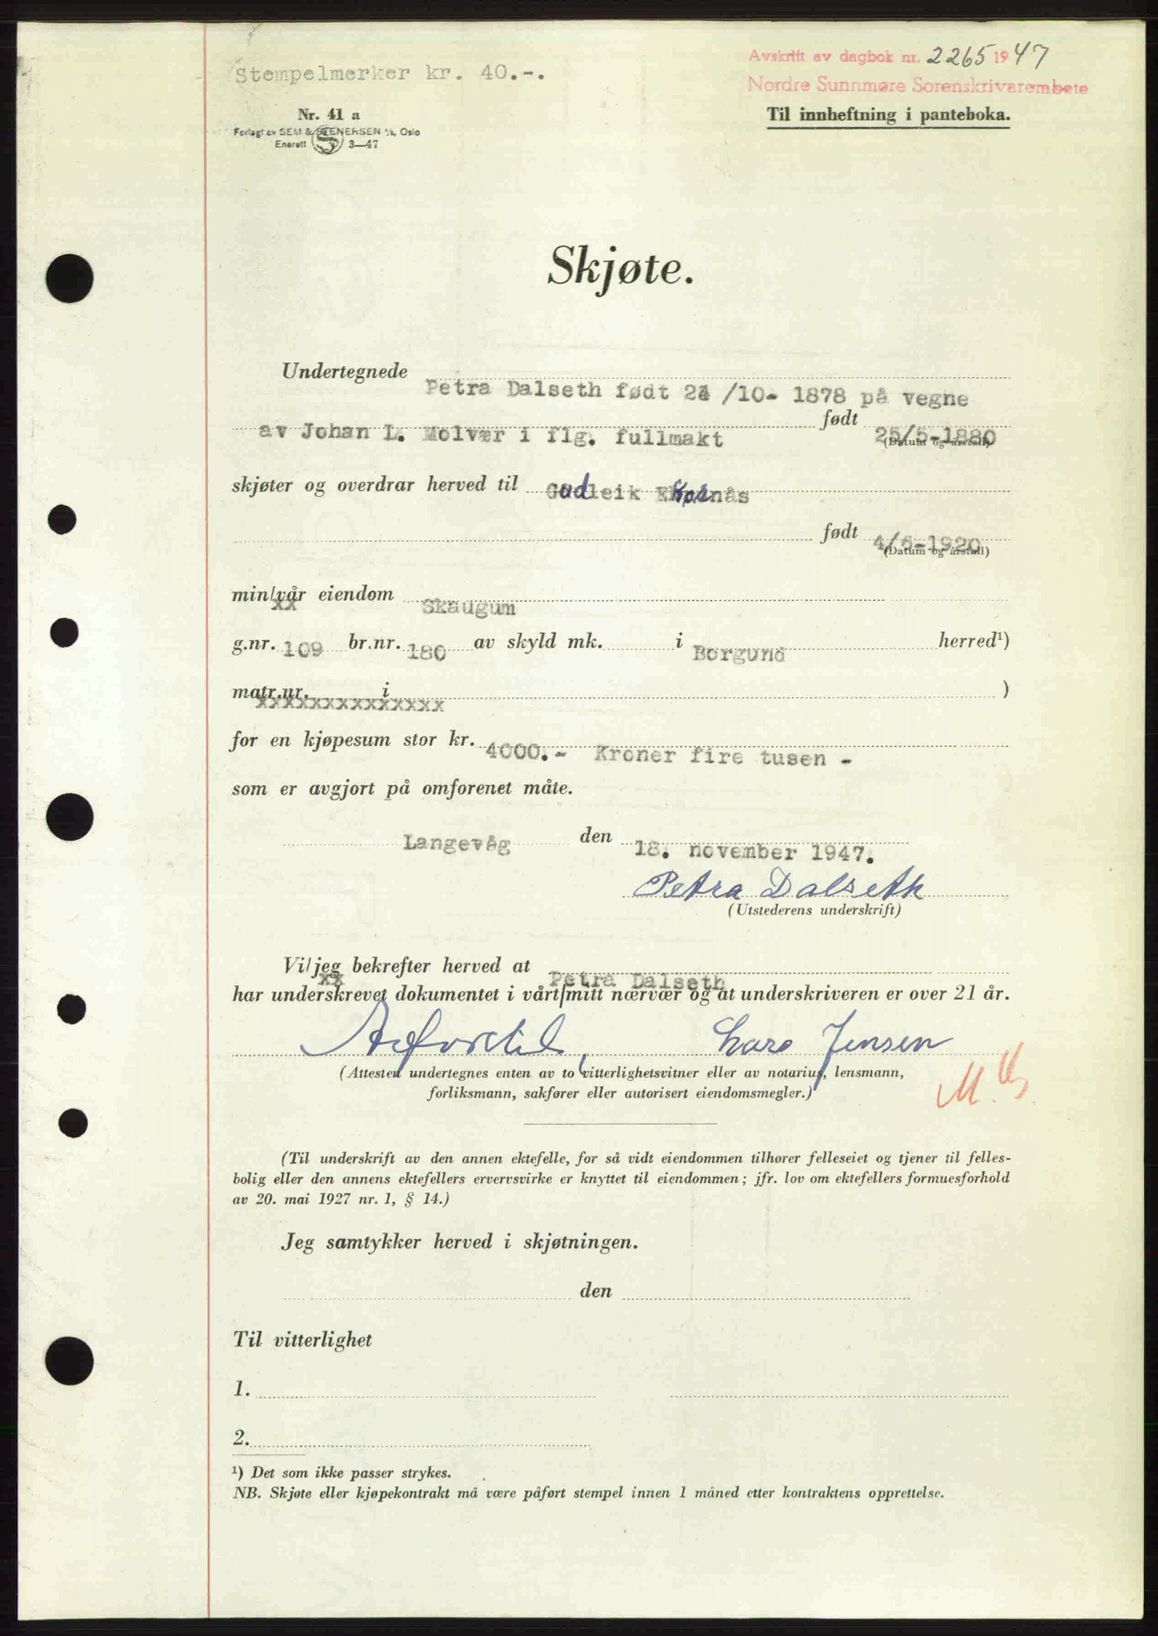 Stempelmerker kr. 40.-.
Avskrift av dagbok nr. 2265 1947
Nordre Sunnmøre Sorenskriverembete
Nr. 41 a
Til innheftning i panteboka.
Forlagt av SEM & STENERSEN A/S, Oslo
Enerett 3—47
Skjøte.
Undertegnede Petra Dalseth født 24 /10- 1878 på vegne
av Johan L. Molvær i flg. fullmakt født 25/5-1880
(Datum og årstall)
skjøter og overdrar herved til Gudleik Ekornås
født 4/5-1920
(Datum og årstall)
min/vår eiendom Skaugum
g.nr. 109 br.nr. 180 av skyld mk. i Borgund herred¹)
matr.nr. i )
for en kjøpesum stor kr. 4000.- Kroner fire tusen -
som er avgjort på omforenet måte.
Langevåg den 18. november 1947.
Petra Dalseth
(Utstederens underskrift)
Vi/jeg bekrefter herved at Petra Dalseth
har underskrevet dokumentet i vårt/mitt nærvær og at underskriveren er over 21 år.
Lars Jensen
(Attesten undertegnes enten av to vitterlighetsvitner eller av notarius, lensmann,
forliksmann, sakfører eller autorisert eiendomsmegler.)
(Til underskrift av den annen ektefelle, for så vidt eiendommen tilhører felleseiet og tjener til felles-
bolig eller den annens ektefellers ervervsvirke er knyttet til eiendommen; jfr. lov om ektefellers formuesforhold
av 20. mai 1927 nr. 1, § 14.)
Jeg samtykker herved i skjøtningen.
den
Til vitterlighet
1.
2.
¹) Det som ikke passer strykes.
NB. Skjøte eller kjøpekontrakt må være påført stempel innen 1 måned etter kontraktens opprettelse.